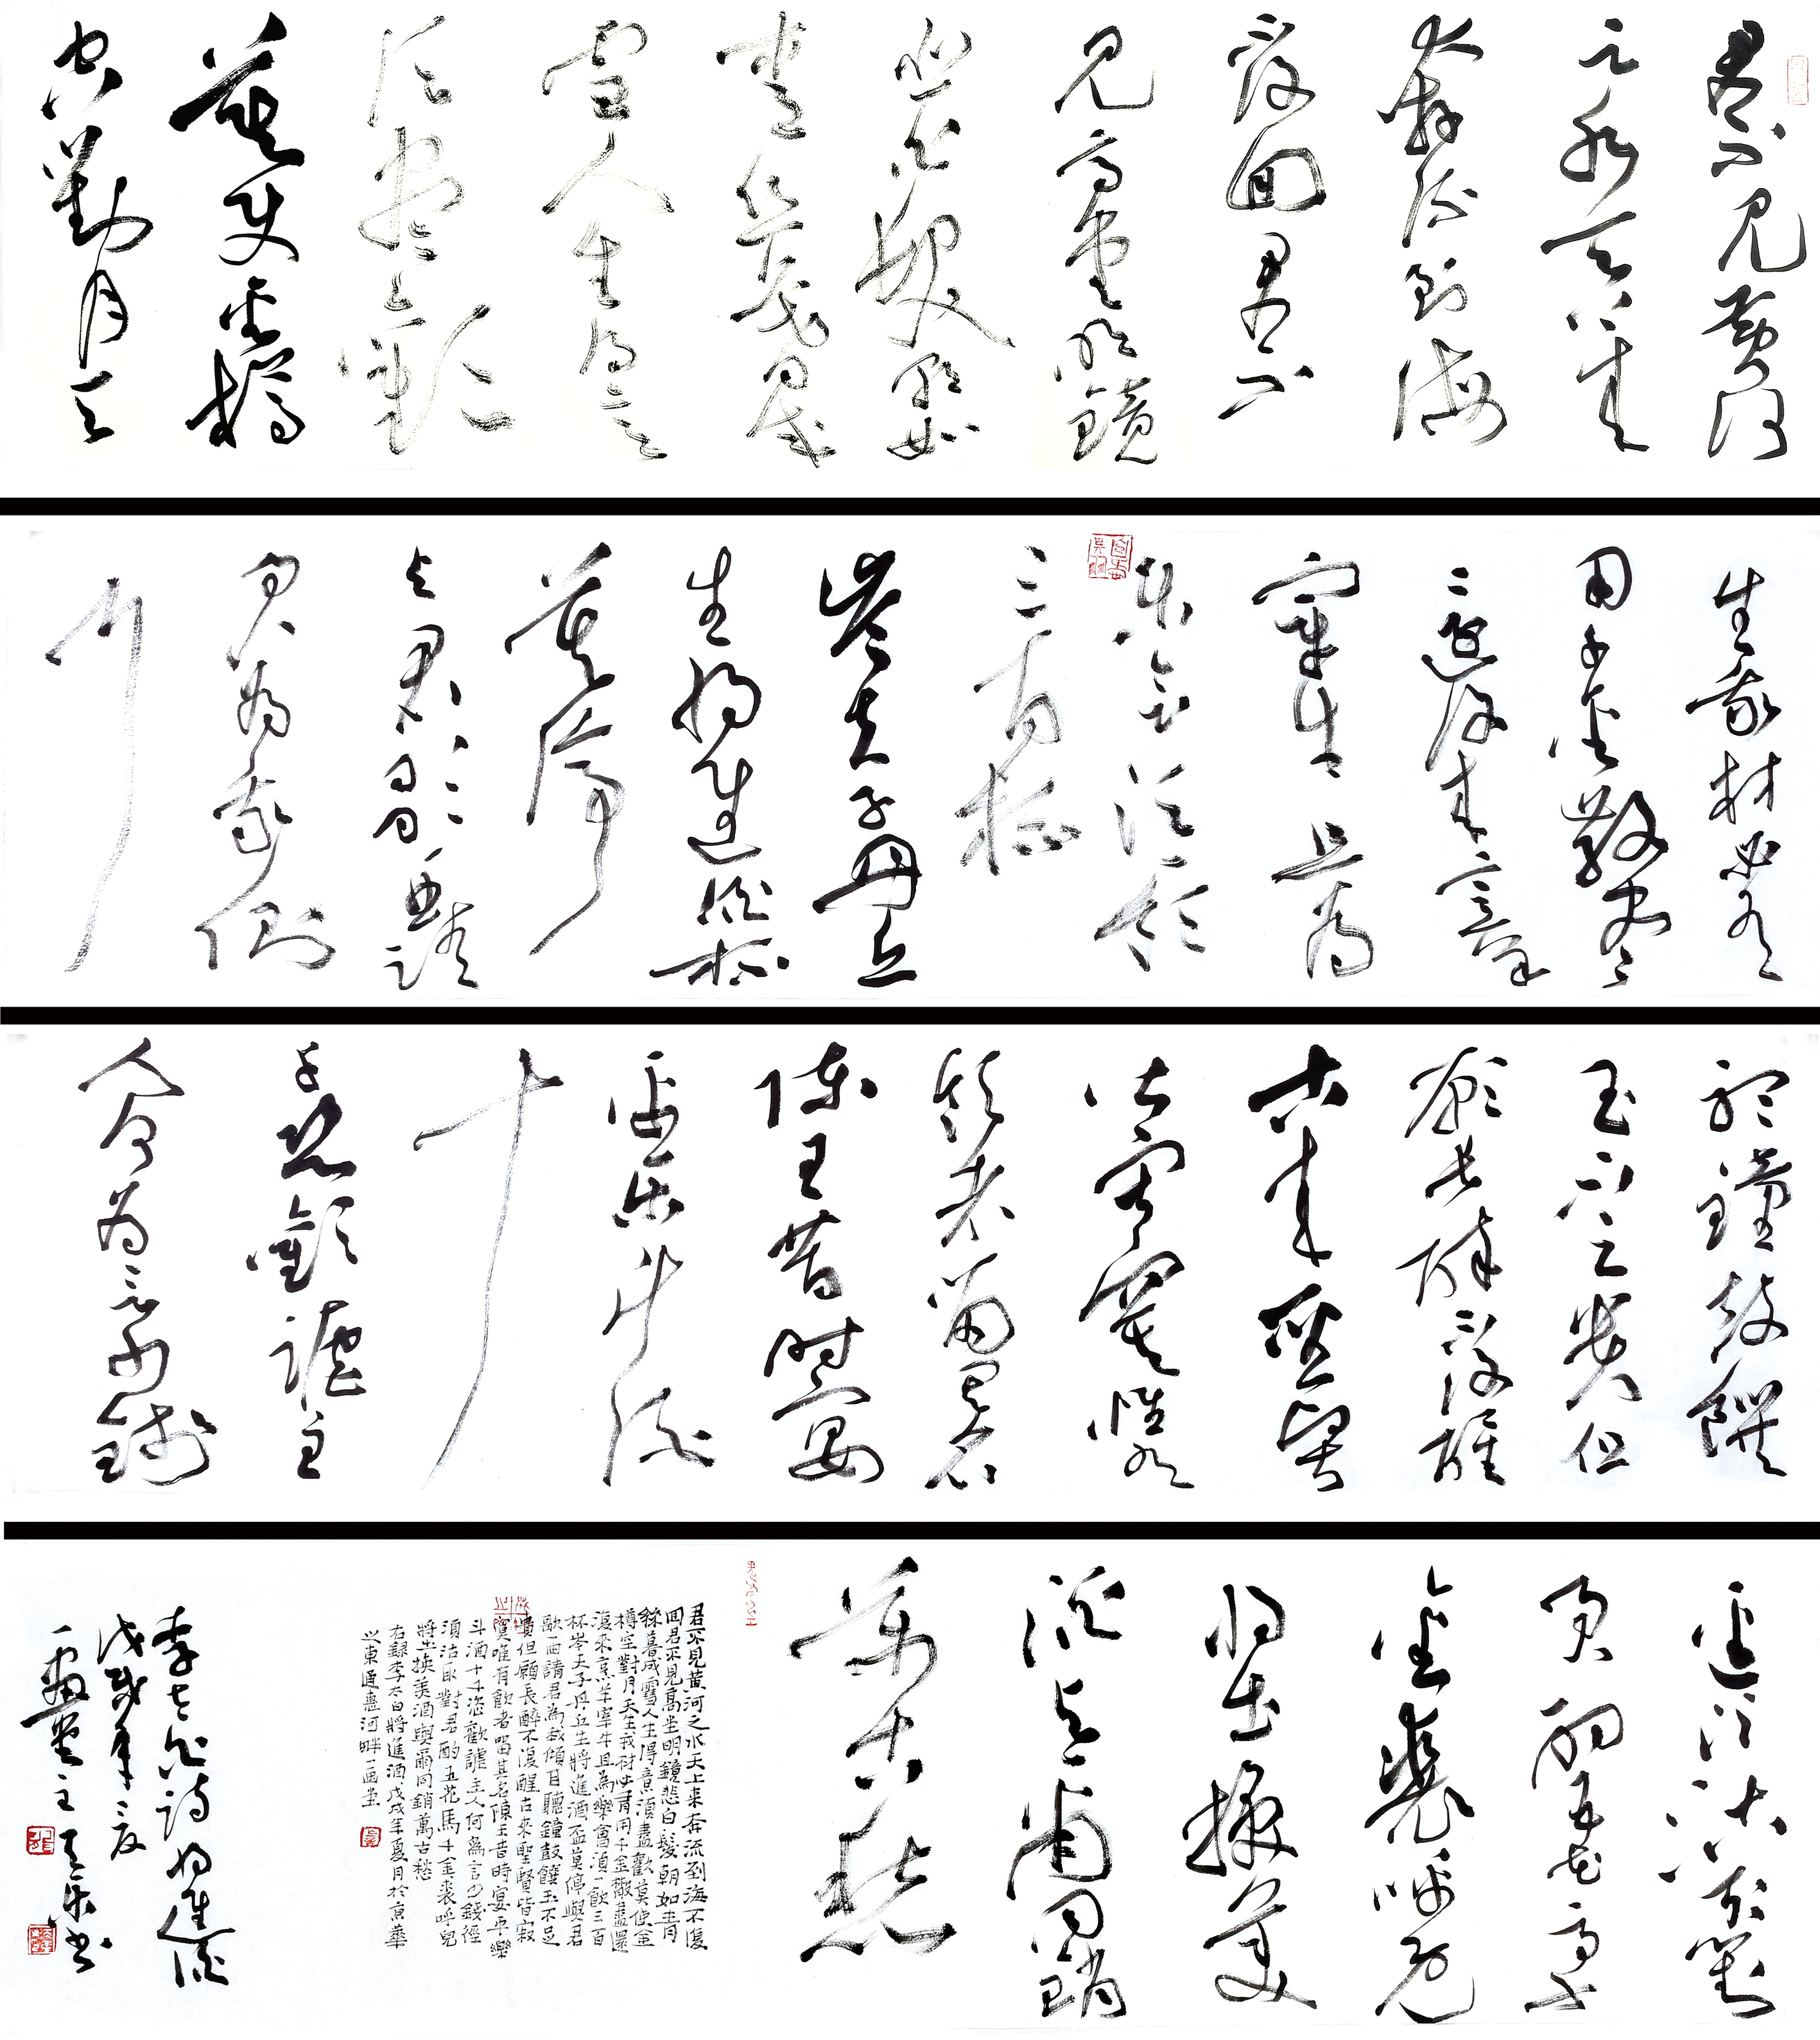 君不見黃河
之水天上來
奔流到海
不復回君不
見高堂明鏡
悲白髮朝如
青絲暮成
雪人生得意
須盡歡
莫使金樽
空對月天
生我材必有
用千金散盡
還復來烹羊
宰牛且為
樂會須一飲
三百杯
岑夫子丹丘
生將進酒杯
莫停
與君歌一曲請
君為我側
耳
聽鐘鼓饌
玉不足貴但
願長醉不復醒
古來聖賢
皆寂寞惟有
飲者留其名
陳王昔時宴
平樂斗酒
十
千恣歡謔主
人何為言少錢
徑須沽取對
君酌五花馬千
金裘呼兒
將出換美
酒與爾同銷
萬古愁
君不見黃河之水天上來奔流到海不復
回君不見高堂明鏡悲白髮朝如青
絲暮成雪人生得意須盡歡莫使金
樽空對月天生我材必有用千金散盡還
復來烹羊宰牛且為樂會須一飲三百
杯岑夫子丹丘生將進酒盃莫停與君
歌一曲請君為我傾耳聽鐘鼓饌玉不足
貴但願長醉不復醒古來聖賢皆寂
寞唯有飲者留其名陳王昔時宴平樂
斗酒十千恣歡謔主人何為言少錢徑
須沽取對君酌五花馬千金裘呼兒
將出換美酒與爾同銷萬古愁
右錄李太白將進酒戊戌年夏月於京華
之東通惠河畔一画堂
李太白詩將進酒
戊戌年之夏
一画堂主天乐书